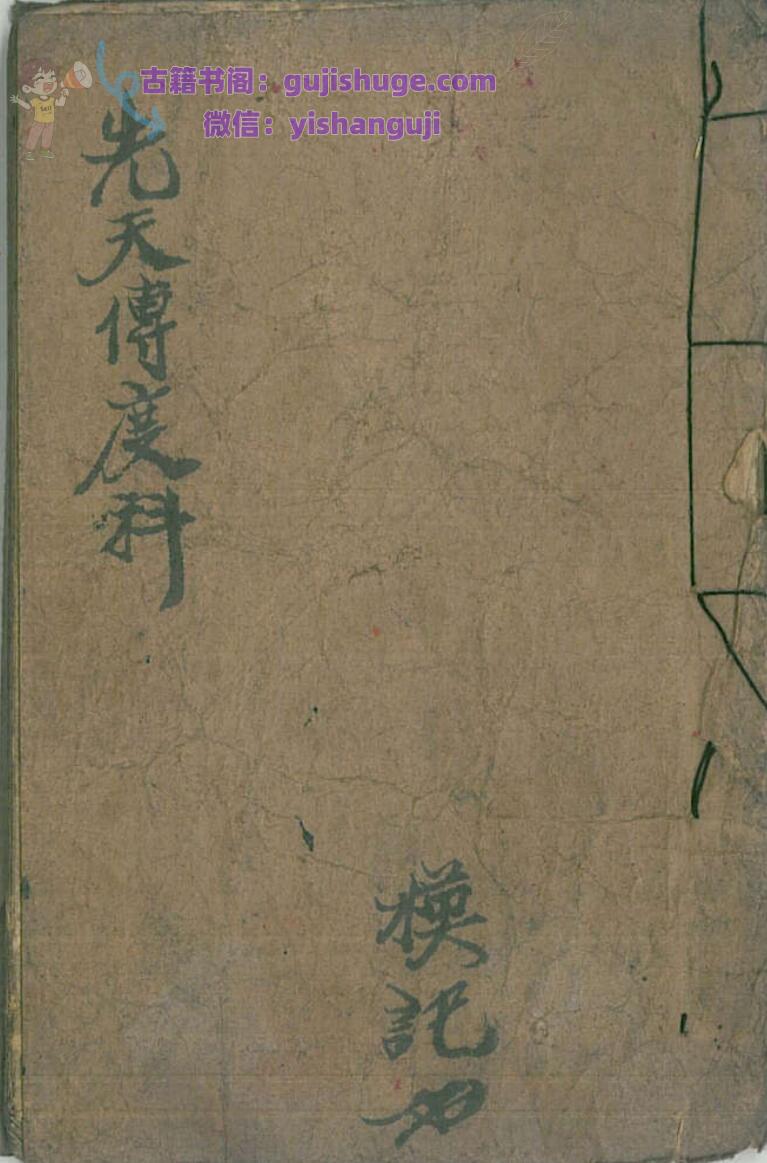 古籍书阁：gujishuge.com
微信：yishanguji
先天傳度科
記